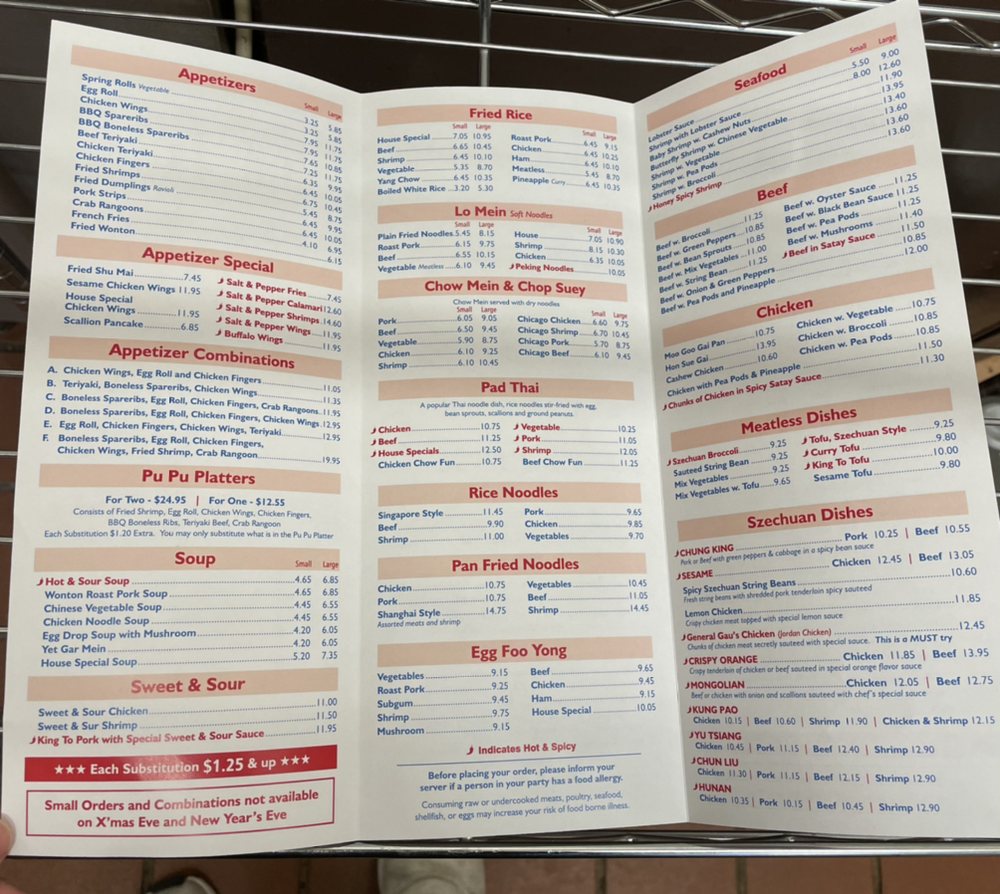 Appetizers
Small Large
Spring Rolls Vegetable 3.25 5.85
Egg Roll 3.25 5.85
Chicken Wings 7.95 11.75
BBQ Spareribs 7.95 11.75
BBQ Boneless Spareribs 7.65 10.85
Beef Teriyaki 7.25 11.75
Chicken Teriyaki 6.35 9.95
Chicken Fingers 6.45 10.05
Fried Shrimps 6.75 10.45
Fried Dumplings Ravioli 5.45 8.75
Pork Strips 6.45 9.95
Crab Rangoons 6.45 10.05
French Fries 4.10 6.95
Fried Wonton 6.15
Appetizer Special
Fried Shu Mai 7.45
Sesame Chicken Wings 11.95
House Special
Chicken Wings 11.95
Scallion Pancake 6.85
Salt & Pepper Fries 7.45
Salt & Pepper Calamari 12.60
Salt & Pepper Shrimps 14.60
Salt & Pepper Wings 11.95
Buffalo Wings 11.95
Appetizer Combinations
A. Chicken Wings, Egg Roll and Chicken Fingers 11.05
B. Teriyaki, Boneless Spareribs, Chicken Wings 11.35
C. Boneless Spareribs, Egg Roll, Chicken Fingers, Crab Rangoons 11.95
D. Boneless Spareribs, Egg Roll, Chicken Fingers, Chicken Wings 12.95
E. Egg Roll, Chicken Fingers, Chicken Wings, Teriyaki 12.95
F. Boneless Spareribs, Egg Roll, Chicken Fingers,
Chicken Wings, Fried Shrimp, Crab Rangoon 19.95
Pu Pu Platters
For Two - $24.95 | For One - $12.55
Consists of Fried Shrimp, Egg Roll, Chicken Wings, Chicken Fingers,
BBQ Boneless Ribs, Teriyaki Beef, Crab Rangoon
Each Substitution $1.20 Extra. You may only substitute what is in the Pu Pu Platter
Soup
Small Large
Hot & Sour Soup 4.65 6.85
Wonton Roast Pork Soup 4.65 6.85
Chinese Vegetable Soup 4.45 6.55
Chicken Noodle Soup 4.45 6.55
Egg Drop Soup with Mushroom 4.20 6.05
Yet Gar Mein 4.20 6.05
House Special Soup 5.20 7.35
Sweet & Sour
Sweet & Sour Chicken 11.00
Sweet & Sur Shrimp 11.50
King To Pork with Special Sweet & Sour Sauce 11.95
★★★ Each Substitution $1.25 & up ★★★
Small Orders and Combinations not available
on X'mas Eve and New Year's Eve
Fried Rice
Small Large
House Special 7.05 10.95
Beef 6.65 10.45
Shrimp 6.45 10.10
Vegetable 5.35 8.70
Yang Chow 6.45 10.35
Boiled White Rice 3.20 5.30
Small Large
Roast Pork 6.45 9.15
Chicken 6.45 10.25
Ham 6.45 10.10
Meatless 5.35 8.70
Pineapple Curry 6.45 10.35
Lo Mein Soft Noodles
Small Large
Plain Fried Noodles 5.45 8.15
Roast Pork 6.15 9.75
Beef 6.55 10.15
Vegetable Meatless 6.10 9.45
Small Large
House 7.05 10.90
Shrimp 8.15 10.30
Chicken 6.35 10.05
Peking Noodles 10.05
Chow Mein & Chop Suey
Chow Mein served with dry noodles
Small Large
Pork 6.05 9.05
Beef 6.50 9.45
Vegetable 5.90 8.75
Chicken 6.10 9.25
Shrimp 6.10 10.45
Small Large
Chicago Chicken 6.60 9.75
Chicago Shrimp 6.70 10.45
Chicago Pork 5.70 8.75
Chicago Beef 6.10 9.45
Pad Thai
A popular Thai noodle dish, rice noodles stir-fried with egg,
bean sprouts, scallions and ground peanuts.
Chicken 10.75
Beef 11.25
House Specials 12.50
Chicken Chow Fun 10.75
Vegetable 10.25
Pork 11.05
Shrimp 12.05
Beef Chow Fun 11.25
Rice Noodles
Singapore Style 11.45
Beef 9.90
Shrimp 11.00
Pork 9.65
Chicken 9.85
Vegetables 9.70
Pan Fried Noodles
Chicken 10.75
Pork 10.75
Shanghai Style 14.75
Assorted meats and shrimp
Vegetables 10.45
Beef 11.05
Shrimp 14.45
Egg Foo Yong
Vegetables 9.15
Roast Pork 9.25
Subgum 9.45
Shrimp 9.75
Mushroom 9.15
Beef 9.65
Chicken 9.45
Ham 9.15
House Special 10.05
Indicates Hot & Spicy
Before placing your order, please inform your
server if a person in your party has a food allergy.
Consuming raw or undercooked meats, poultry, seafood,
shellfish, or eggs may increase your risk of food borne illness.
Seafood
Small Large
Lobster Sauce 5.50 9.00
Shrimp with Lobster Sauce 8.00 12.60
Baby Shrimp w. Cashew Nuts 11.90
Butterfly Shrimp w. Chinese Vegetable 13.95
Shrimp w. Vegetable 13.40
Shrimp w. Pea Pods 13.60
Shrimp w. Broccoli 13.60
Honey Spicy Shrimp 13.60
Beef
Beef w. Broccoli 11.25
Beef w. Green Peppers 10.85
Beef w. Bean Sprouts 10.85
Beef w. Mix Vegetables 11.00
Beef w. String Bean 11.25
Beef w. Onion & Green Peppers 10.85
Beef w. Pea Pods and Pineapple 12.00
Beef w. Oyster Sauce 11.25
Beef w. Black Bean Sauce 11.25
Beef w. Pea Pods 11.25
Beef w. Mushrooms 11.40
Beef in Satay Sauce 11.50
Chicken
Moo Goo Gai Pan 10.75
Hon Sue Gai 13.95
Cashew Chicken 10.60
Chicken w. Vegetable 10.75
Chicken w. Broccoli 10.85
Chicken w. Pea Pods 10.85
Chicken with Pea Pods & Pineapple 11.50
Chunks of Chicken in Spicy Satay Sauce 11.30
Meatless Dishes
Szechuan Broccoli 9.25
Sauteed String Bean 9.25
Mix Vegetables 9.25
Mix Vegetables w. Tofu 9.65
Tofu, Szechuan Style 9.25
Curry Tofu 9.80
King To Tofu 10.00
Sesame Tofu 9.80
Szechuan Dishes
CHUNG KING Pork 10.25 | Beef 10.55
Pork or Beef with green peppers & cabbage in a spicy bean sauce
SESAME Chicken 12.45 | Beef 13.05
Spicy Szechuan String Beans 10.60
Fresh string beans with shredded pork tenderloin spicy sauteed
Lemon Chicken 11.85
Crispy chicken meat topped with special lemon sauce
General Gau's Chicken (Jordan Chicken) 12.45
Chunks of chicken meat secretly sauteed with special sauce. This is a MUST try
CRISPY ORANGE Chicken 11.85 | Beef 13.95
Crispy tenderloin of chicken or beef sauteed in special orange flavor sauce
MONGOLIAN Chicken 12.05 | Beef 12.75
Beef or chicken with onion and scallions sauteed with chef's special sauce
KUNG PAO
Chicken 10.15 | Beef 10.60 | Shrimp 11.90 | Chicken & Shrimp 12.15
YU TSIANG
Chicken 10.45 | Pork 11.15 | Beef 12.40 | Shrimp 12.90
CHUN LIU
Chicken 11.30 | Pork 11.15 | Beef 12.15 | Shrimp 12.90
HUNAN
Chicken 10.35 | Pork 10.15 | Beef 10.45 | Shrimp 12.90